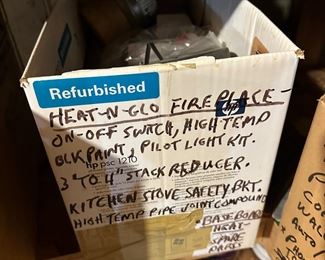 Refurbished
HEAT-N-GLO FIREPLACE-
hp
ON-OFF SWITCH, HIGH TEMP
BLK PAINT, PILOT LIGHT KIT.
hp psc 1210
3" TO 4" STACK REDUCER.
KITCHEN STOVE SAFETY BKT.
HIGH TEMP PIPE JOINT COMPOUND
• BASE BOARD
HEAT-
SPARE
PARTS